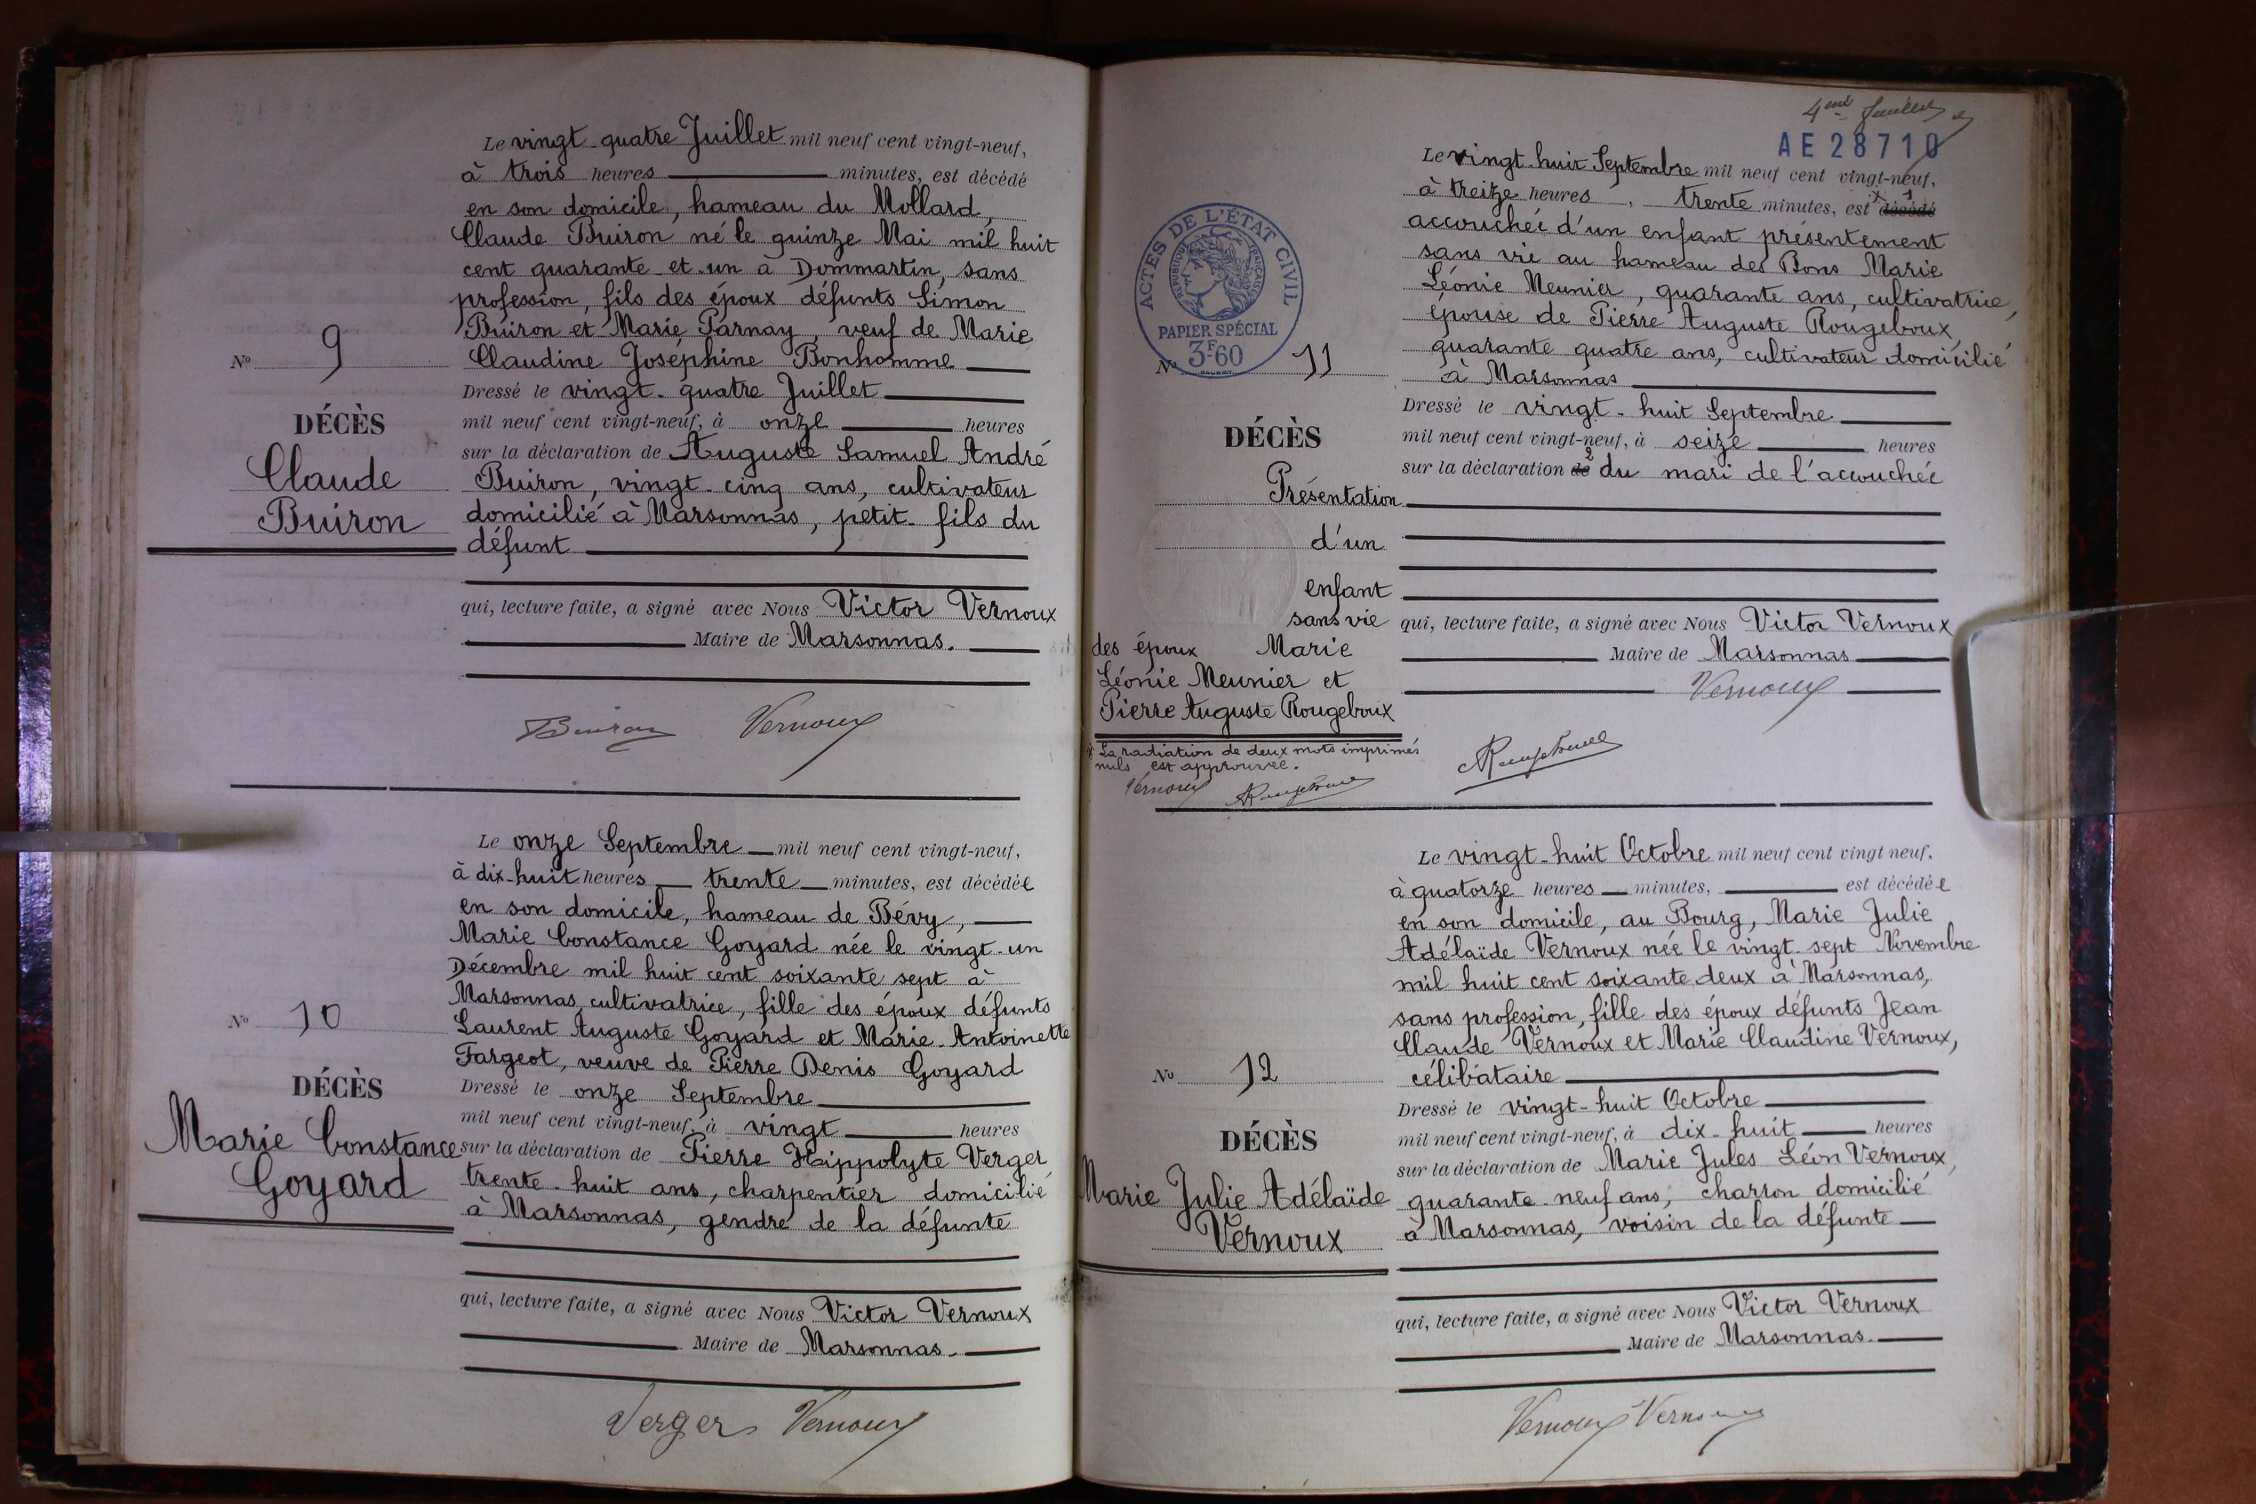 Le vingt-quatre Juillet mil neuf cent vingt-neuf,
à trois heures minutes, est décédé
en son domicile, hameau du Mollard,
Claude Buiron né le quinze Mai mil huit
cent quarante et un à Dommartin, sans
profession, fils des époux défunts Simon
Buiron et Marie Parnay, veuf de Marie
Claudine Joséphine Bonhomme
Dressé le vingt-quatre Juillet
mil neuf cent vingt-neuf, à onze heures
sur la déclaration de Auguste Samuel André
Buiron, vingt-cinq ans, cultivateur
domicilié à Marsonnas, petit-fils du
défunt
qui, lecture faite, a signé avec Nous Victor Vernoux
Maire de Marsonnas.
Buiron Vernoux
No 9
DÉCÈS
Claude
Buiron
Le onze Septembre mil neuf cent vingt-neuf,
à dix-huit heures trente minutes, est décédée
en son domicile, hameau de Bévy,
Marie Constance Goyard née le vingt-un
Décembre mil huit cent soixante sept à
Marsonnas, cultivatrice, fille des époux défunts
Laurent Auguste Goyard et Marie-Antoinette
Fargeot, veuve de Pierre Denis Goyard
Dressé le onze Septembre
mil neuf cent vingt-neuf, à vingt heures
sur la déclaration de Pierre Hippolyte Verger,
trente-huit ans, charpentier domicilié
à Marsonnas, gendre de la défunte
qui, lecture faite, a signé avec Nous Victor Vernoux
Maire de Marsonnas.
Verger Vernoux
No 10
DÉCÈS
Marie Constance
Goyard
4me feuillet
AE 28710
Le vingt-huit Septembre mil neuf cent vingt-neuf,
à treize heures, trente minutes, est x 1 décédé
accouchée d'un enfant présentement
sans vie au hameau des Bons Marie
Léonie Meunier, quarante ans, cultivatrice,
épouse de Pierre Auguste Rougeboux,
quarante quatre ans, cultivateur domicilié
à Marsonnas
Dressé le vingt-huit Septembre
mil neuf cent vingt-neuf, à seize heures
sur la déclaration de 2 du mari de l'accouchée
qui, lecture faite, a signé avec Nous Victor Vernoux
Maire de Marsonnas
Vernoux
ARougeboux
ACTES DE L'ÉTAT CIVIL
RÉPUBLIQUE FRANÇAISE
PAPIER SPÉCIAL
3F60
No 11
DÉCÈS
Présentation
d'un
enfant
sans vie
des époux Marie
Léonie Meunier et
Pierre Auguste Rougeboux
x La radiation de deux mots imprimés
nuls est approuvée.
Vernoux ARougeboux
Le vingt-huit Octobre mil neuf cent vingt neuf,
à quatorze heures minutes, est décédée
en son domicile, au Bourg, Marie Julie
Adélaïde Vernoux née le vingt-sept Novembre
mil huit cent soixante deux à Marsonnas,
sans profession, fille des époux défunts Jean
Claude Vernoux et Marie Claudine Vernoux,
célibataire
Dressé le vingt-huit Octobre
mil neuf cent vingt-neuf, à dix-huit heures
sur la déclaration de Marie Jules Léon Vernoux,
quarante-neuf ans, charron domicilié
à Marsonnas, voisin de la défunte
qui, lecture faite, a signé avec Nous Victor Vernoux
Maire de Marsonnas.
Vernoux Vernoux
No 12
DÉCÈS
Marie Julie Adélaïde
Vernoux